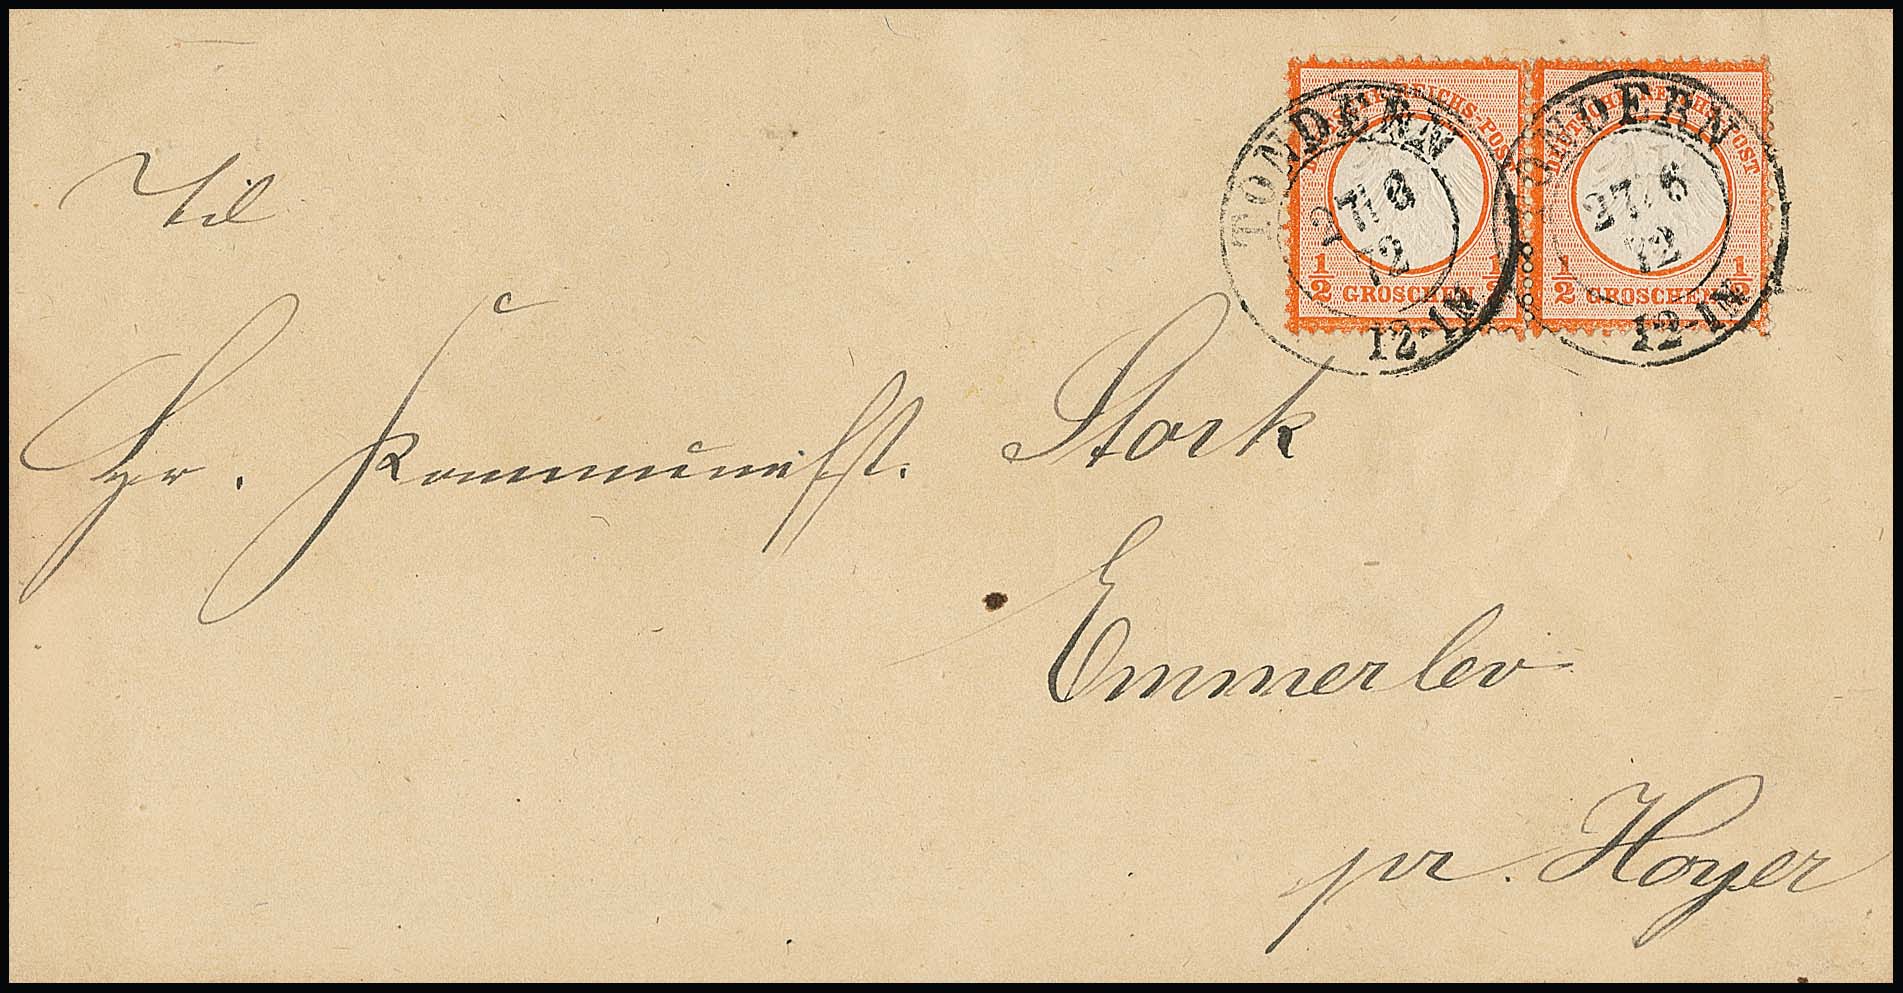 DEUTSCHE REICHS-POST
DEUTSCHE REICHS-POST
1/2 GROSCHEN 1/2
1/2 GROSCHEN 1/2
TONDERN
27 6
72
12-1N
TONDERN
27 6
72
12-1N
Til
Hr. Stork
Emmerlev
pr. Hoyer